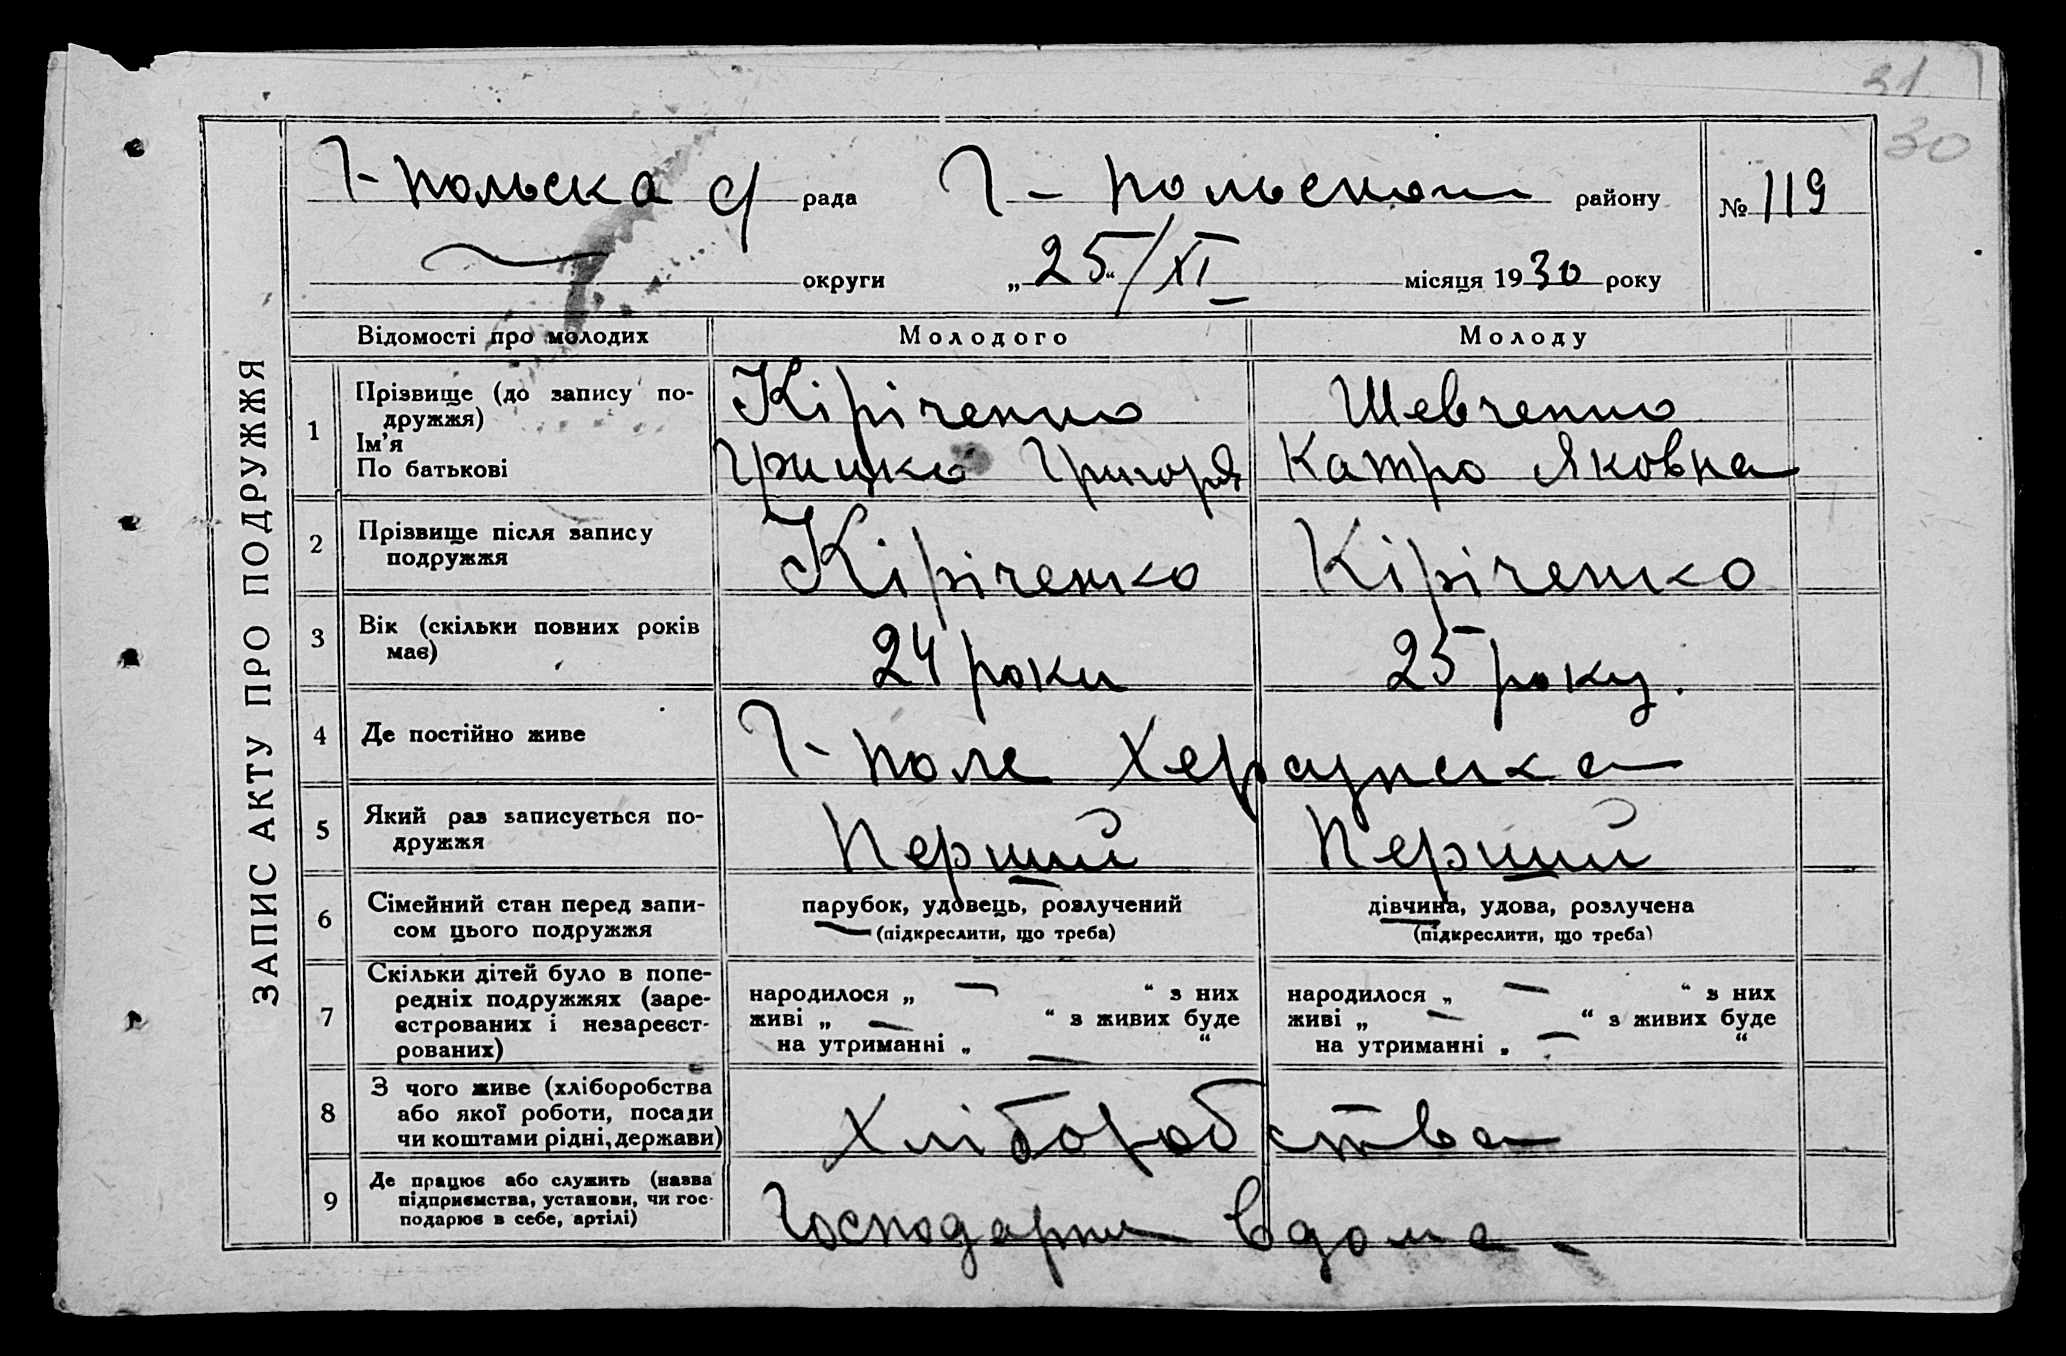 31
30
ЗАПИС АКТУ ПРО ПОДРУЖЖЯ
Г-польска с/ рада Г-польском району № 119
округи „25“/XI місяця 1930 року
Відомості про молодих Молодого Молоду
1 Прізвище (до запису подружжя) Кіріченко Шевченко
Ім'я
По батькові Грицко Григоря Катро Яковна
2 Прізвище після запису
подружжя Кіріченко Кіріченко
3 Вік (скільки повних років
має) 24 роки 25 року.
4 Де постійно живе Г-поле
5 Який раз записується по-
дружжя Перший Перший
6 Сімейний стан перед запи-
сом цього подружжя парубок, удовець, розлучений дівчина, удова, розлучена
(підкреслити, що треба) (підкреслити, що треба)
7 Скільки дітей було в попе-
редніх подружжях (заре-
єстрованих і незареєст-
рованих)
народилося „ — “ з них народилося „ — “ з них
живі „ — “ з живих буде живі „ — “ з живих буде
на утриманні „ — “ на утриманні „ — “
8 З чого живе (хліборобства
або якої роботи, посади
чи коштами рідні, держави) Хліборобства
9 Де працює або служить (назва
підприємства, установи, чи гос-
подарює в себе, артілі) Господарни вдома.